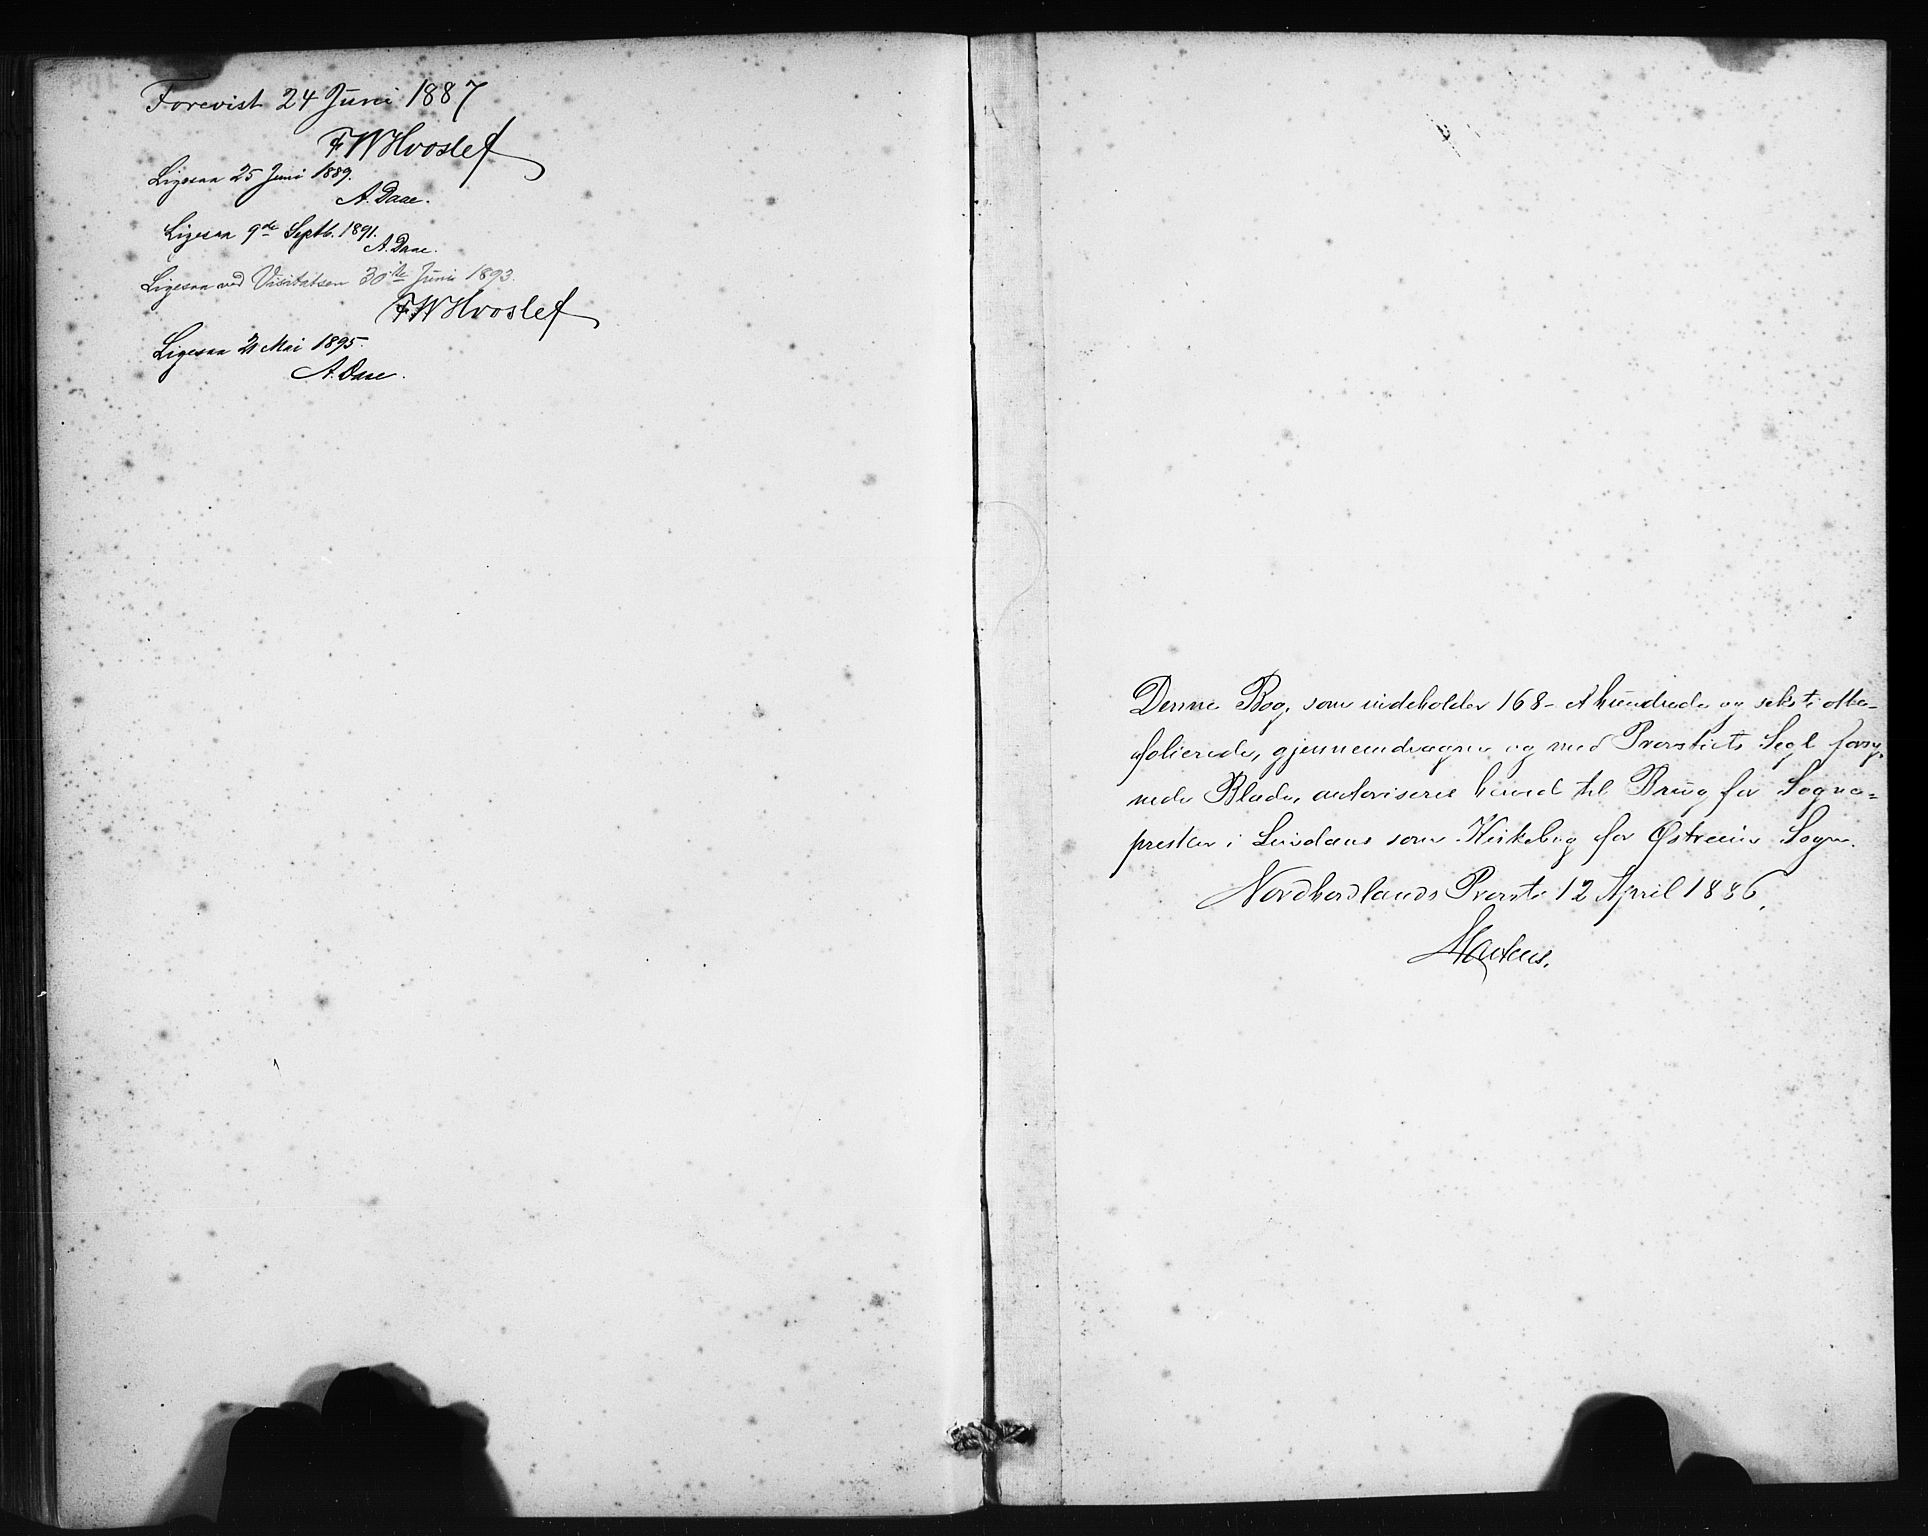 Forevist 24 Juni 1887
FWHvoslef
Ligesaa 25 Juni 1889.
A. Daae.
Ligesaa 9de Septb. 1891.
A. Daae.
Ligesaa ved Visitatsen 30te Juni 1893.
FWHvoslef
Ligesaa 21 Mai 1895.
A. Daae.
Denne Bog, som indeholder 168 - et hundrede og seksti otte -
folierede, gjennemdragne og med Provstiets Segl forsy-
nede Blade, autoriseres herved til Brug for Sogne=
presten i Lindaas som Kirkebog for Østreim Sogn.
Nordhordlands Provsti 12 April 1886.